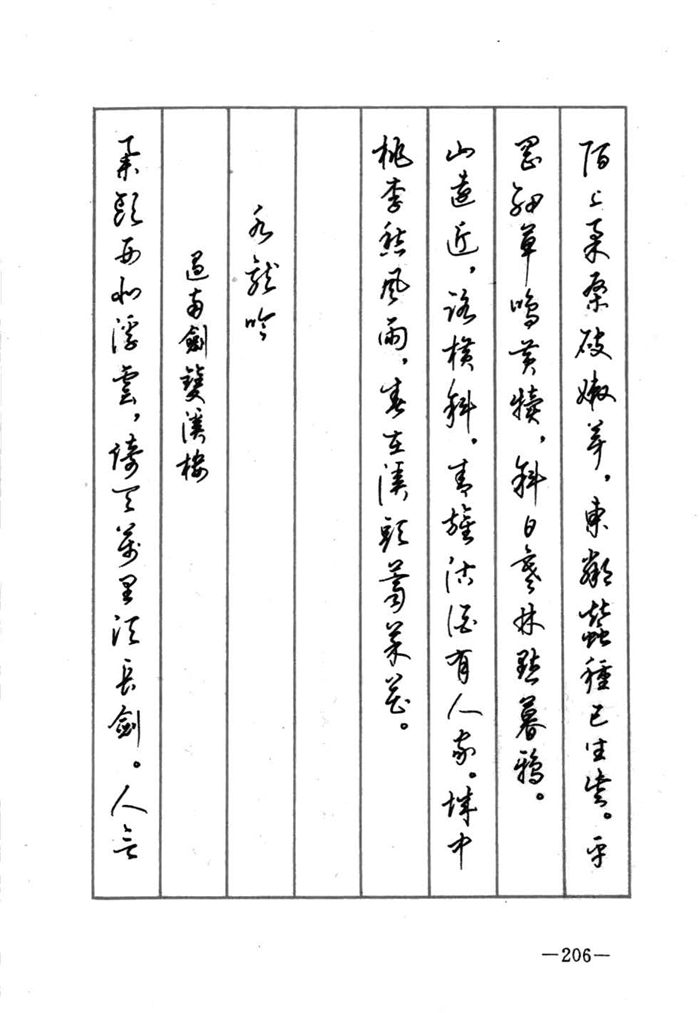 陌上柔桑破嫩芽，東鄰蠶種已生些。平
岡細草鳴黃犢，斜日寒林點暮鴉。
山遠近，路橫斜。青旗沽酒有人家。城中
桃李愁風雨，春在溪頭薺菜花。
水龍吟
過南劍雙溪樓
舉頭西北浮雲，倚天萬里須長劍。人言
—206—